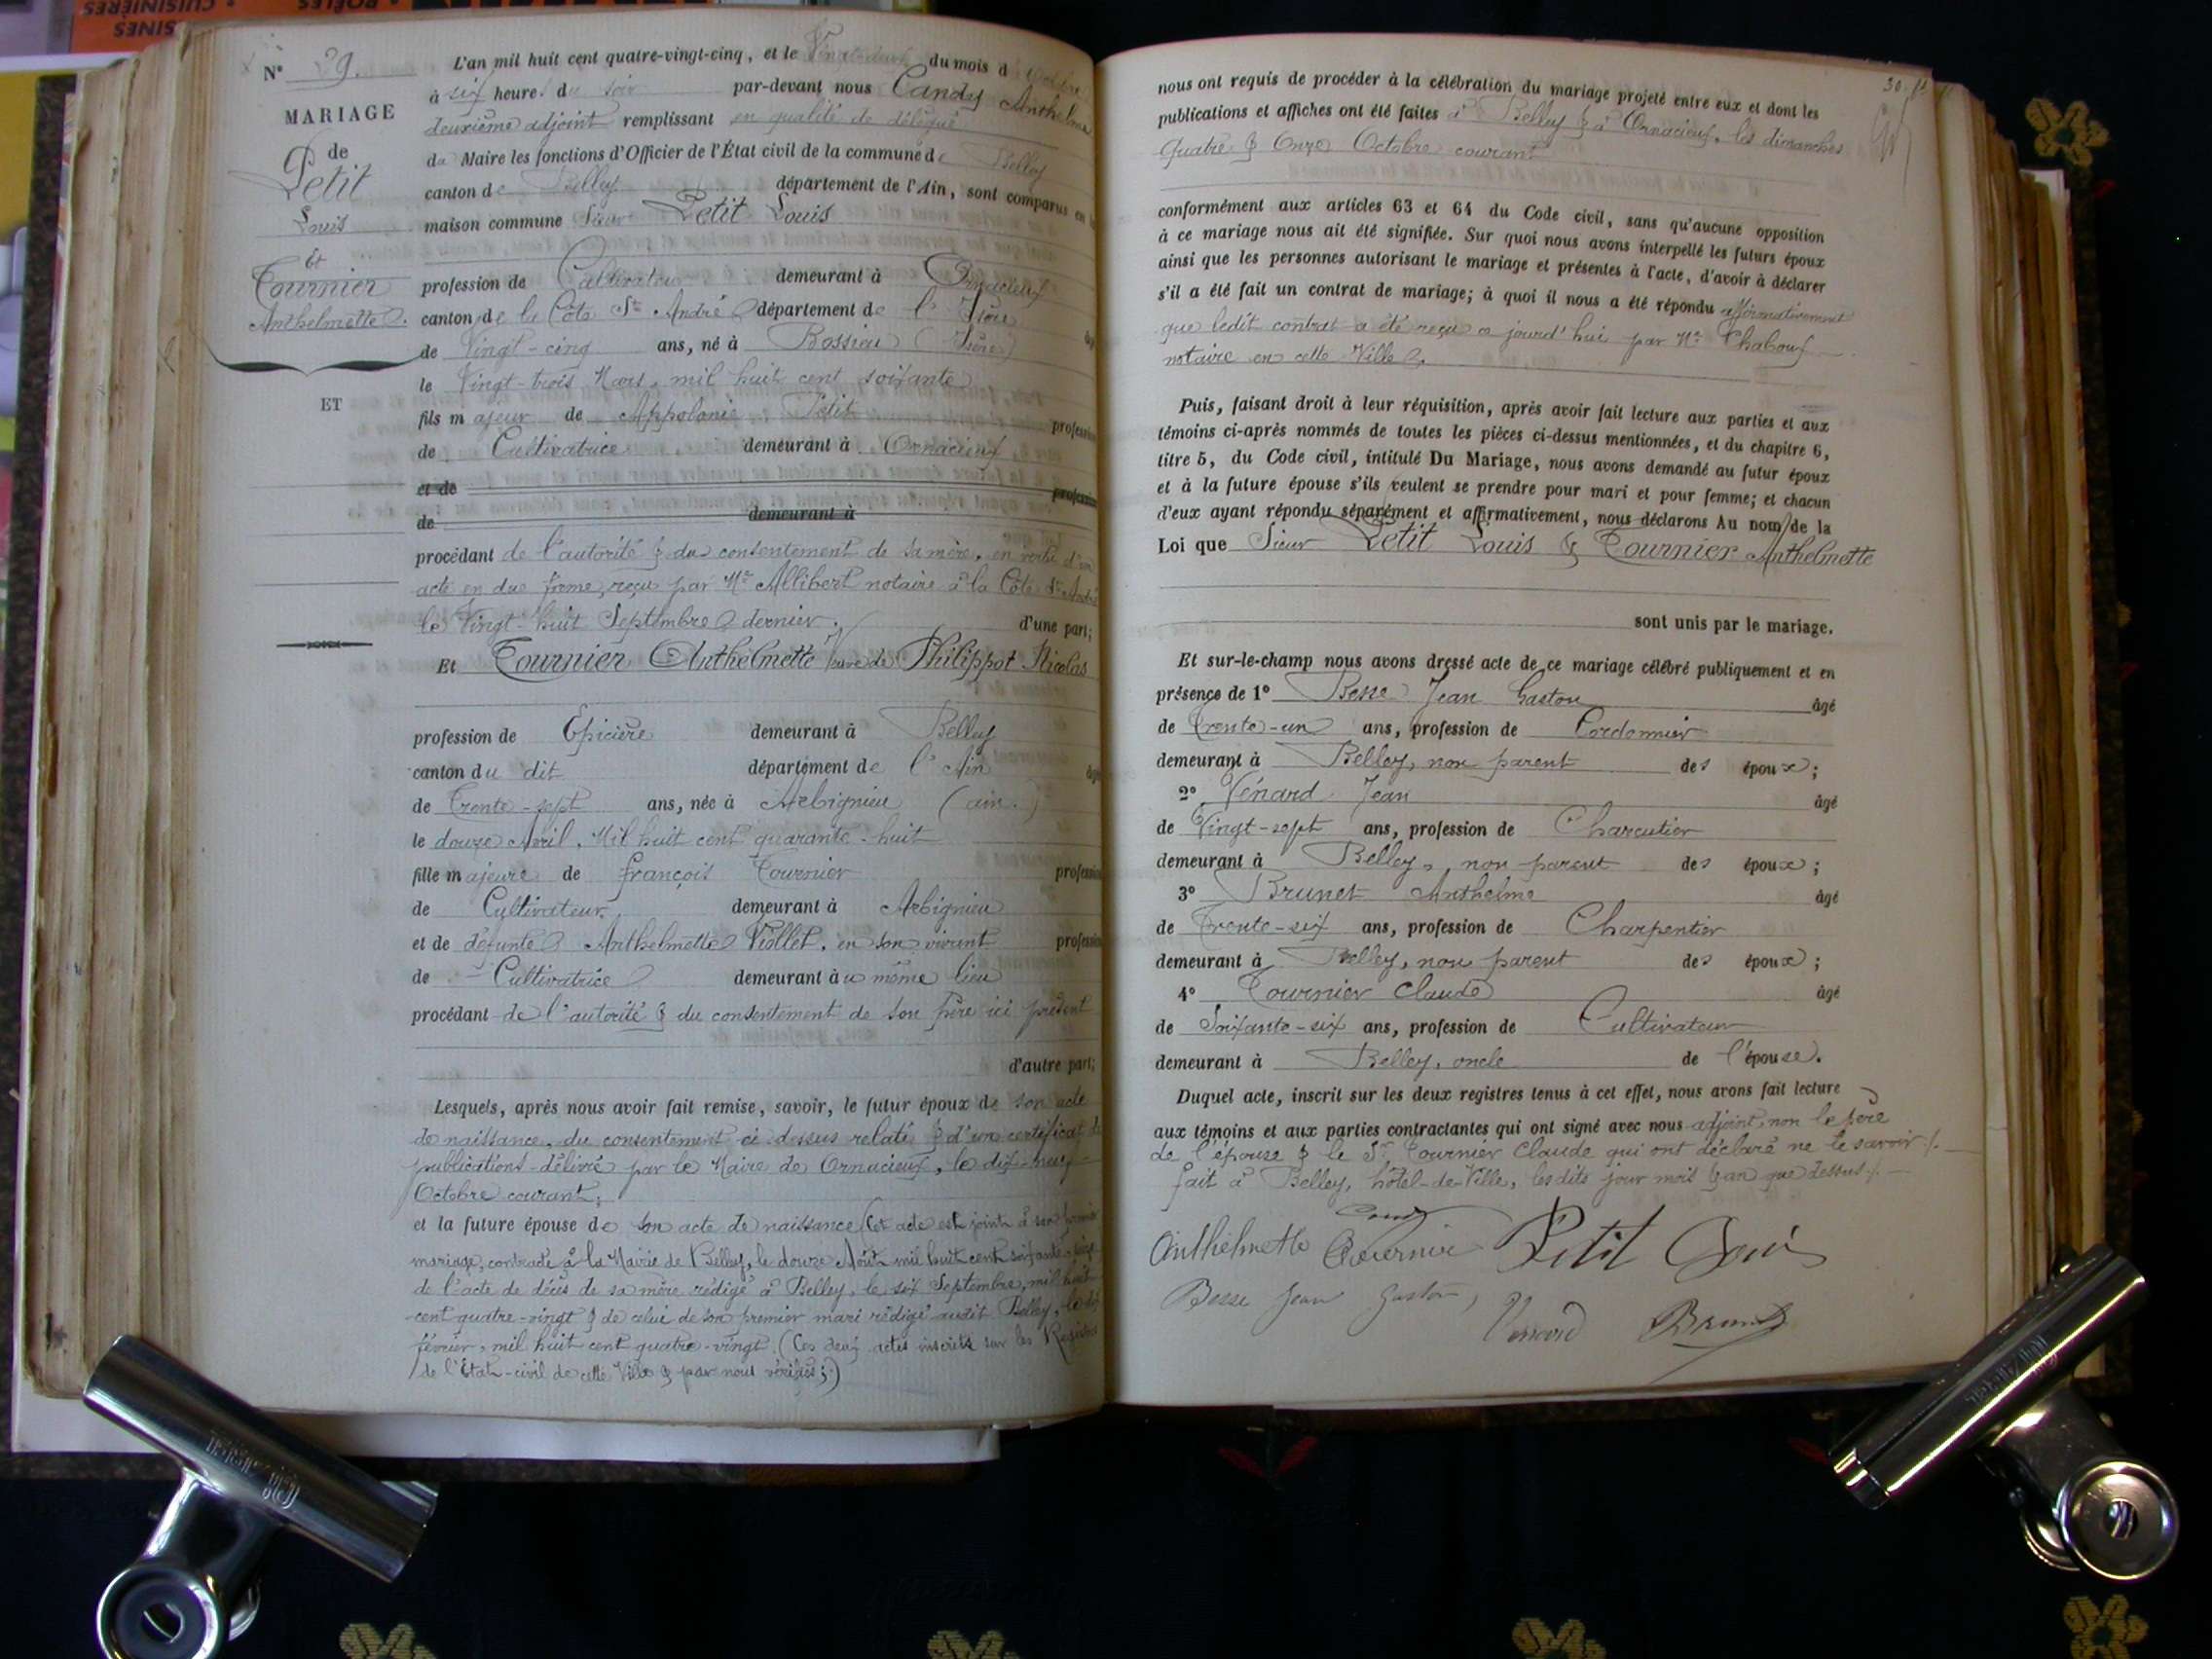 N° 29.
MARIAGE
de
Petit
Louis
et
Tournier
Anthelmette
ET
L'an mil huit cent quatre-vingt-cinq, et le du mois d
à six heures du soir par-devant nous Candy Anthelme
deuxième adjoint remplissant en qualité de délégué
du Maire les fonctions d'Officier de l'État civil de la commune de Belley
canton de Belley département de l'Ain, sont comparus en la
maison commune Sieur Petit Louis
profession de Cultivateur demeurant à Ornacieux
canton de la Côte St André département de l'Isère
de Vingt-cinq ans, né à Bossieu (Isère)
le Vingt-trois Mars, mil huit cent soixante
fils majeur de Appolonie Petit profession
de Cultivatrice demeurant à Ornacieux
et de profession
de demeurant à
procédant de l'autorité & du consentement de sa mère, en vertu d'un
acte en due forme, reçu par Me Allibert notaire à la Côte St André
le Vingt-huit Septembre dernier. d'une part;
Et Tournier Anthelmette Vve de Philippot Nicolas
profession de Epicière demeurant à Belley
canton du dit département de l'Ain
de Trente-sept ans, née à Arbignieu (ain.)
le douze Avril, Mil huit cent quarante-huit
fille majeure de françois Tournier profession
de Cultivateur demeurant à Arbignieu
et de défunte Anthelmette Viollet, en son vivant profession
de Cultivatrice demeurant au même lieu
procédant de l'autorité & du consentement de son père ici présent
d'autre part;
Lesquels, après nous avoir fait remise, savoir, le futur époux de son acte
de naissance, du consentement ci-dessus relaté & d'un certificat de
publications délivré par le Maire de Ornacieux, le dix-neuf
Octobre courant;
et la future épouse de son acte de naissance (cet acte est joint à son premier
mariage, contracté à la Mairie de Belley, le douze Août mil huit cent soixante-
de l'acte de décès de sa mère rédigé à Belley, le six Septembre, mil huit
cent quatre-vingt & de celui de son premier mari rédigé audit Belley, le
février, mil huit cent quatre-vingt. (Ces deux actes inscrits sur les Registres
de l'État-civil de cette Ville & par nous vérifiés;)
30.
nous ont requis de procéder à la célébration du mariage projeté entre eux et dont les
publications et affiches ont été faites à Belley & à Ornacieux, les dimanches
Quatre & Onze Octobre courant
conformément aux articles 63 et 64 du Code civil, sans qu'aucune opposition
à ce mariage nous ait été signifiée. Sur quoi nous avons interpellé les futurs époux
ainsi que les personnes autorisant le mariage et présentes à l'acte, d'avoir à déclarer
s'il a été fait un contrat de mariage; à quoi il nous a été répondu affirmativement
que ledit contrat a été reçu ce jourd'hui par Me Chabouf
notaire en cette Ville.
Puis, faisant droit à leur réquisition, après avoir fait lecture aux parties et aux
témoins ci-après nommés de toutes les pièces ci-dessus mentionnées, et du chapitre 6,
titre 5, du Code civil, intitulé Du Mariage, nous avons demandé au futur époux
et à la future épouse s'ils veulent se prendre pour mari et pour femme; et chacun
d'eux ayant répondu séparément et affirmativement, nous déclarons Au nom de la
Loi que Sieur Petit Louis & Tournier Anthelmette
sont unis par le mariage.
Et sur-le-champ nous avons dressé acte de ce mariage célébré publiquement et en
présence de 1° Besse Jean Gaston âgé
de Trente-un ans, profession de Cordonnier
demeurant à Belley, non parent des époux;
2° Vénard Jean âgé
de Vingt-sept ans, profession de Charcutier
demeurant à Belley, non parent des époux;
3° Brunet Anthelme âgé
de Trente-six ans, profession de Charpentier
demeurant à Belley, non parent des époux;
4° Tournier Claude âgé
de Soixante-six ans, profession de Cultivateur
demeurant à Belley, oncle de l'épouse.
Duquel acte, inscrit sur les deux registres tenus à cet effet, nous avons fait lecture
aux témoins et aux parties contractantes qui ont signé avec nous adjoint, non le père
de l'épouse & le Sr Tournier Claude qui ont déclaré ne le savoir ./.
fait à Belley, hôtel-de-Ville, lesdits jour mois & an que dessus ./.
Candy
Anthelmette Tournier Petit Louis
Besse Jean Gaston, Venard Brunet